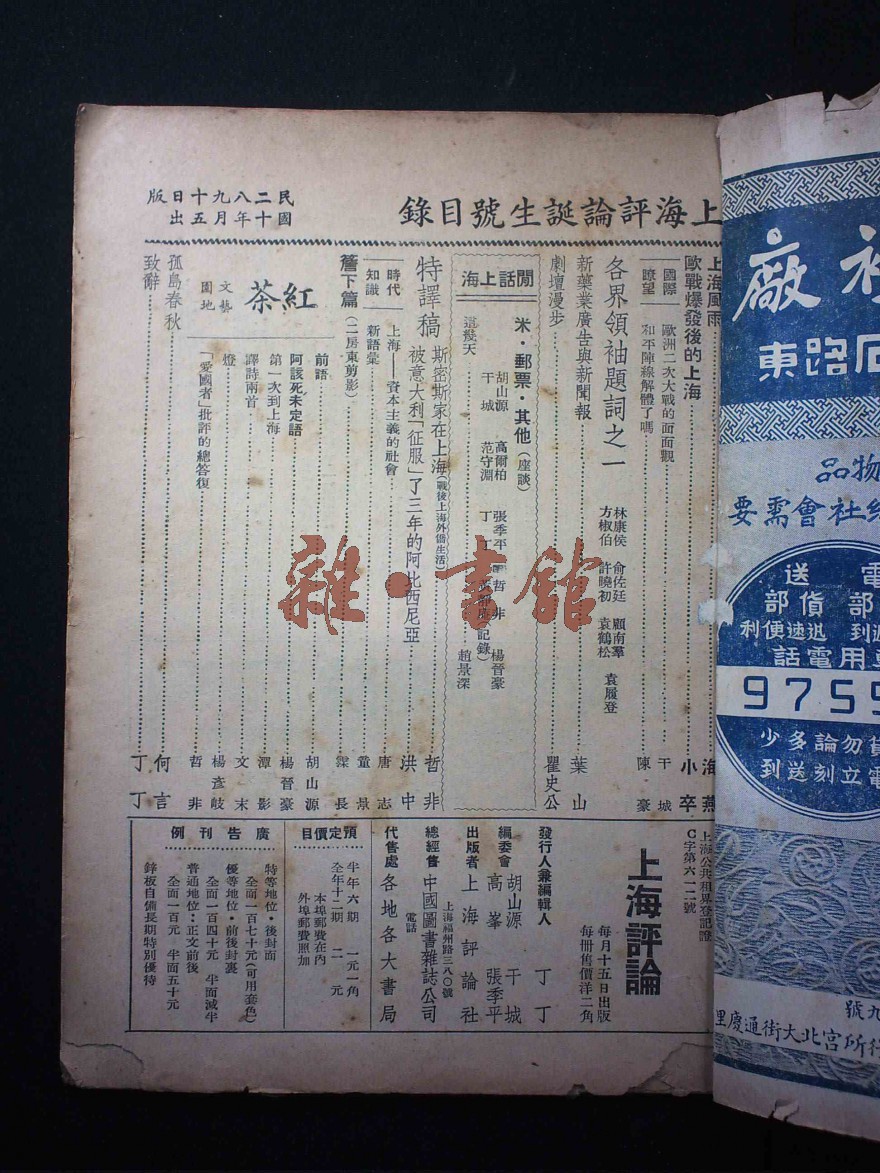 上海評論誕生號目錄
民國二十八年九月十五日出版
上海風雨
海燕
歐戰爆發後的上海
小卒
國際瞭望
歐洲二次大戰的面面觀
干城
和平陣線解體了嗎
陳豪
各界領袖題詞之一
林康侯 俞佐廷 顧南羣 袁履登
方椒伯 許曉初 袁鶴松
新藥業廣告與新聞報
葉山
劇壇漫步
瞿史公
閒話上海
米·郵票·其他(座談)
胡山源 高爾柏 張季平 哲非 楊晉豪
干城 范守淵 丁丁
記錄)
這幾天
趙景深
特譯稿
斯密斯家在上海(戰後上海外僑生活)
哲非
被意大利「征服」了三年的阿比西尼亞
洪中
時代知識
上海——資本主義的社會
唐志
新語彙
童景
簷下篇(二房東剪影)
梁長
紅茶
文藝園地
前語
胡山源
阿該死未定語
楊晉豪
第一次到上海
潭影
譯詩兩首
文末
燈
楊彥岐
「愛國者」批評的總答復
哲非
孤島春秋
何言
致辭
丁丁
上海公共租界登記證
C字第六一二號
上海評論
每月十五日出版
每冊售價洋二角
發行人兼編輯人 丁丁
編委會 胡山源 干城
高峯 張季平
出版者 上海評論社
總經售 中國圖書雜誌公司
上海福州路三八〇號
電話
代售處 各地各大書局
預定價目
半年六期 一元一角
全年十二期 二元
本埠郵費在內
外埠郵費照加
廣告刊例
特等地位·後封面
全面一百七十元(可用套色)
優等地位·前後封裏
全面一百四十元 半面減半
普通地位·正文前後
全面一百元 半面五十元
鋅板自備長期特別優待
雜·書館
廠
路東
物品
社會需要
送貨部
電
部
迅速便利
到
用電話
9759
貨勿論多少
電立刻送到
九號
行所宮北大街通慶里